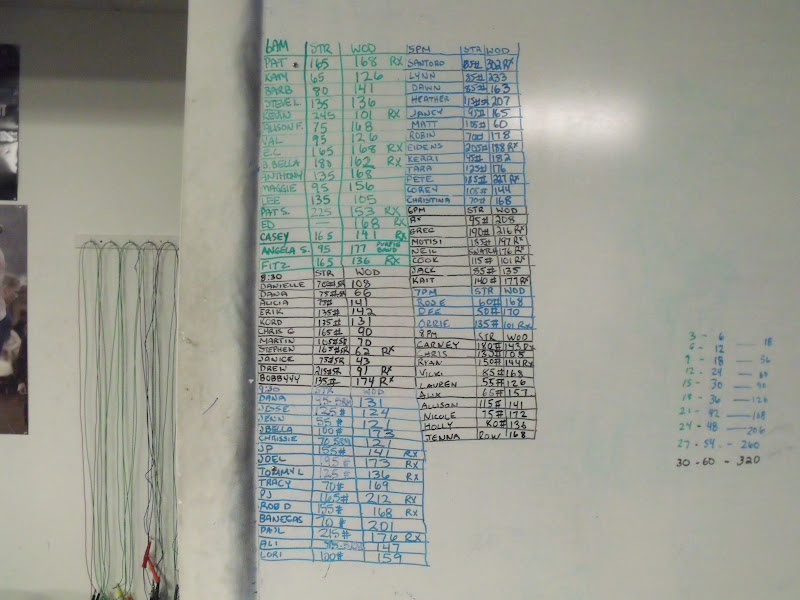 6AM STR WOD
PAT 165 168 RX
KAM 65 126
BARB 80 141
STEVE L 135 136
KEVIN 245 101 RX
ALISON F. 75 168
VAL 95 126
E.C. 165 168 RX
J.BELLA 180 162 RX
ANTHONY 135 168
MAGGIE 95 156
LEE 135 105
PAT S. 225 153 RX
ED — 168 RX
CASEY 165 141 RX
ANGELA S. 95 177 PURPLE BAND
FITZ 165 136 RX
8:30 STR WOD
DANIELLE 108
DANA 66
ALICIA 75# 141
ERIK 135# 142
KORD 135# 131
CHRIS G 165# 90
MARTIN 70
STEPHEN 62 RX
JANICE 75# 43
DREW 91 RX
BOBBYYY 135# 174 RX
9:30 STR WOD
DANA 131
JESSE 135# 124
JENN 55# 121
JBELLA 100# 173
CHRISSIE 121
JP 155# 141 RX
JOEL 95# 173 RX
TOMMY L 125# 136 RX
TRACY 70# 169
PJ 165# 212 RX
ROB D 155# 168 RX
BANEGAS 70# 201
PAUL 215# 176 RX
ALI 147
LORI 100# 159
5PM STR WOD
SANTORO 302 RX
LYNN 85# 233
DAWN 85# 163
HEATHER 207
JANCY 95# 165
MATT 105# 60
ROBIN 70# 178
EIDENS 205# 188 RX
KERRI 95# 182
TARA 125# 176
PETE 185# 227 RX
COREY 105# 144
CHRISTINA 70# 168
6PM STR WOD
RX 95# 208
GREG 190# 216 RX
MOTISI 135# 147 RX
NEIL SNATCH 176 RX
COOK 115# 101 RX
JACK 85# 135
KAIT 140# 177 RX
7PM STR WOD
ROSE 60# 168
DEE 50# 170
ORRIE 135# 101 RX
8PM STR WOD
CARNEY 180# 143 RX
CHRIS 180# 105
RYAN 150# 144 RX
VICKI 85# 168
LAUREN 55# 126
ALIX 65# 157
ALLISON 115# 141
NICOLE 75# 172
HOLLY 80# 136
JENNA ROW 168
3 - 6 — 18
6 - 12 — 36
9 - 18 — 60
12 - 24 — 90
15 - 30
18 - 36 — 126
21 - 42 — 168
24 - 48 — 206
27 - 54 — 260
30 - 60 - 320